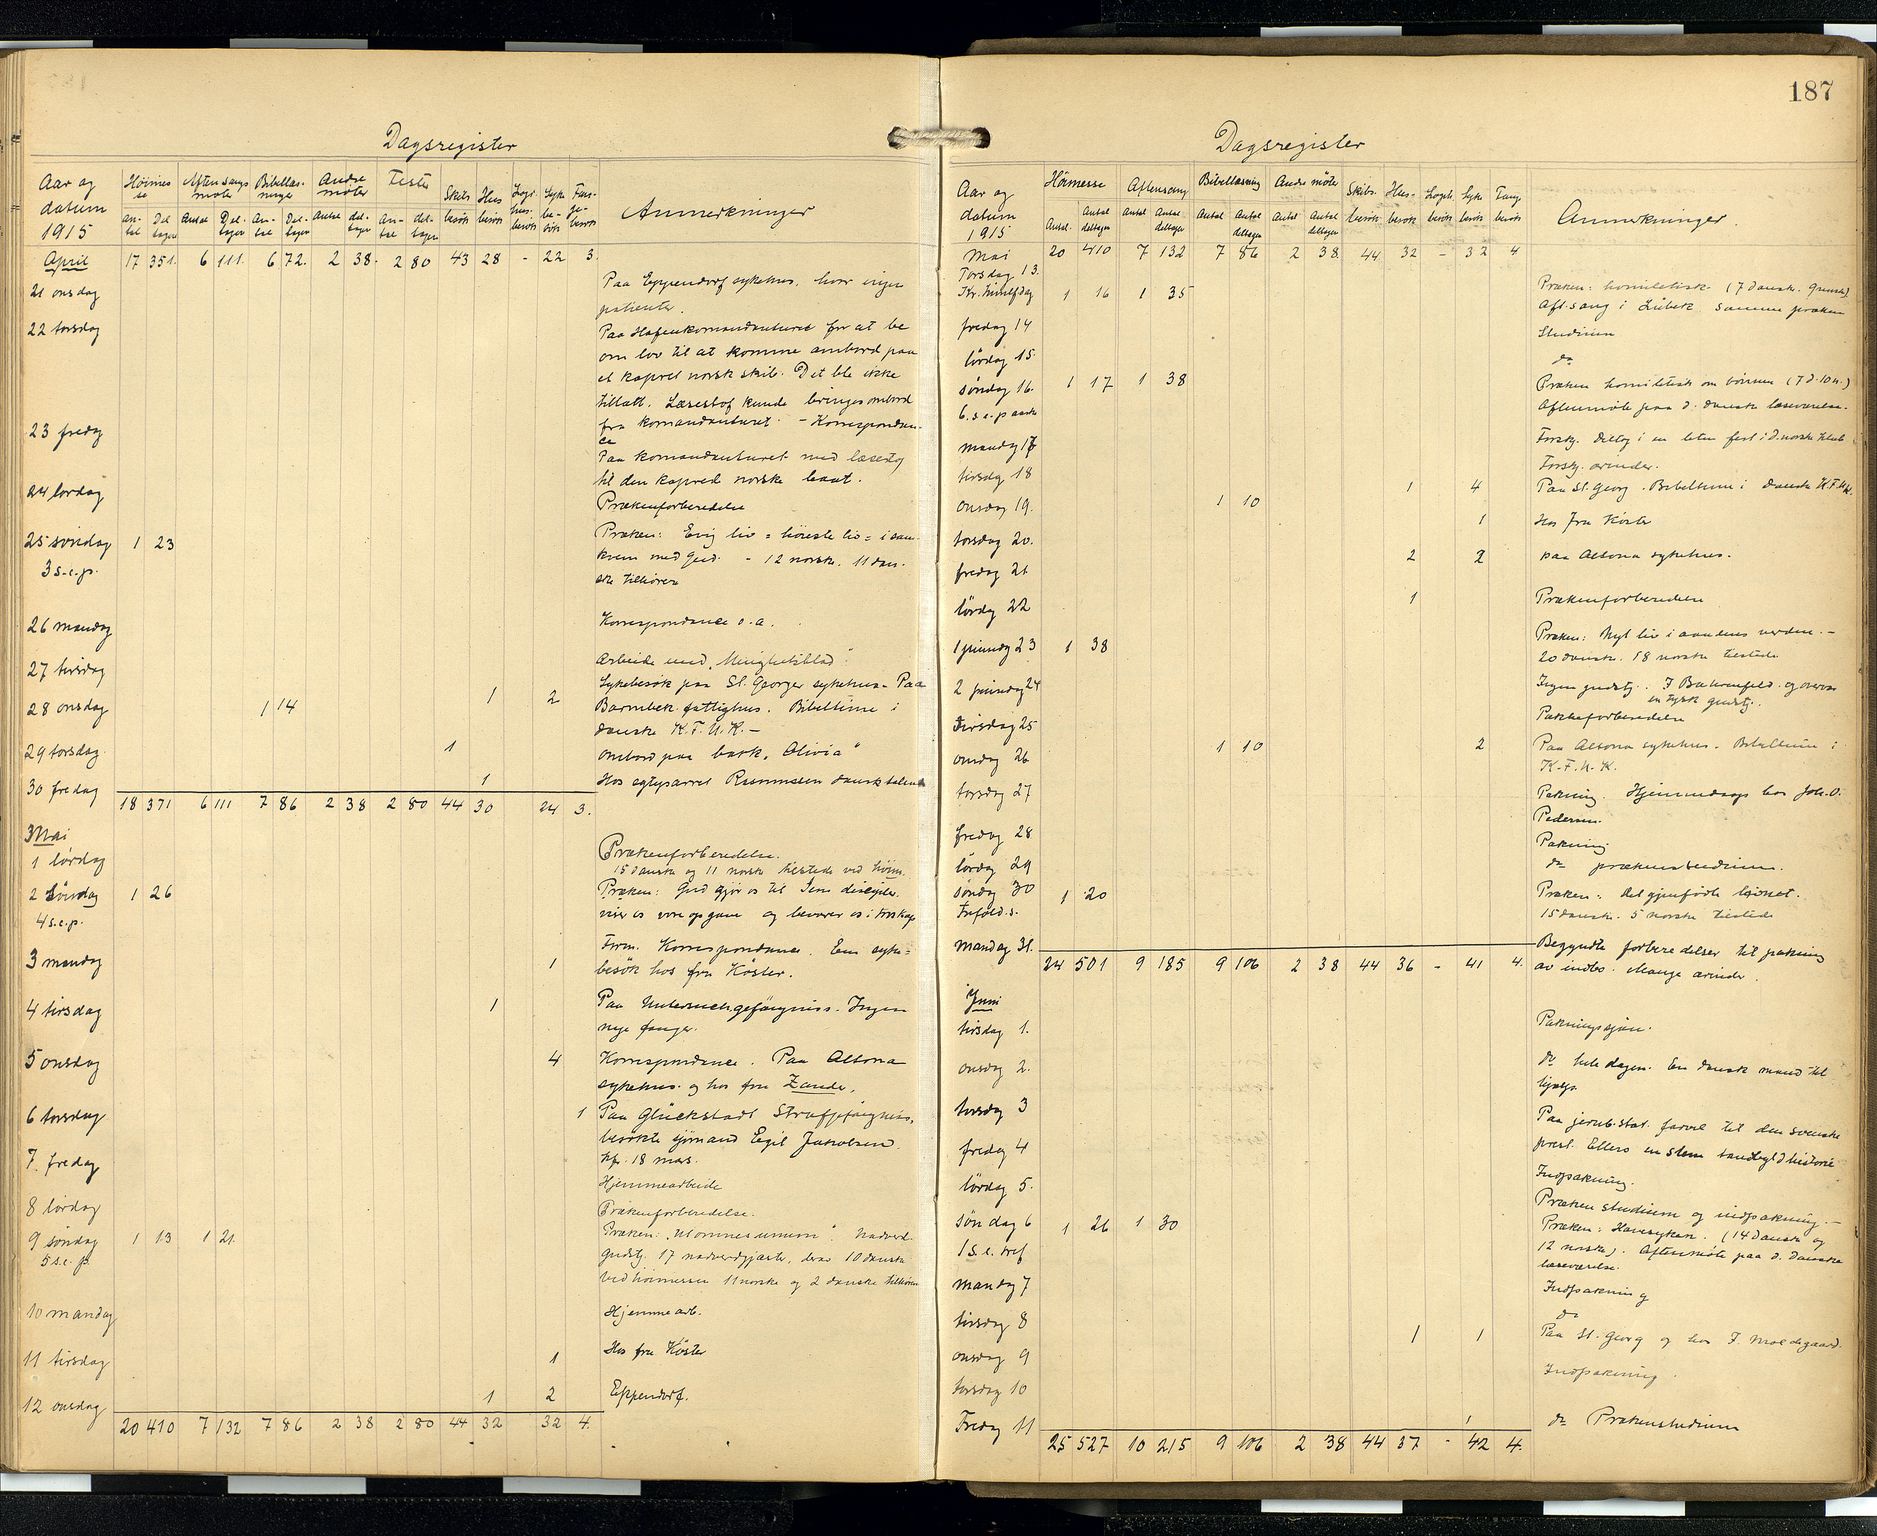 187
Dagsregister
Aar og datum 1915 | Høimesse antal | Deltager | Aftensangsmøte Antal | Deltager | Bibellæsninger Antal | Deltager | Andre møter Antal | deltager | Fester antal | deltager | Skibsbesøk | Husbesøk | Logihusbesøk | Sykebesøk | Fængebesøk | Anmerkninger
April 17 351 6 111 6 72 2 38 2 80 43 28 - 22 3
21 onsdag Paa Eppendorf sykehus, hvor ingen
patienter.
22 torsdag Paa Hafenkomandanturet for at be
om lov til at komme ambord paa
et kapret norsk skib. Det ble ikke
tillatt. Læsestof kunde bringes ombord
fra komandanturet. - Korrespondan-
ce
23 fredag Paa komandanturet med læsestof
til den kapred norske baat.
24 lørdag Prækenforberedelse
25 søndag 1 23 Præken: Evig liv = høieste liv = i sam-
3 s.e.p. kvem med Gud. - 12 norske, 11 dan-
ske tilhørere
26 mandag Korrespondance o.a.
27 tirsdag Arbeide med "Menighetsblad".
Sykebesøk paa St. Georger sykehus - Paa
28 onsdag 1 14 1 2 Barmbek fattighus. Bibeltime i
danske K.F.U.K. -
29 torsdag 1 ombord paa bark "Olivia"
30 fredag 1 Hos egteparret Rasmussen dansk talende
18 371 6 111 7 86 2 38 2 80 44 30 24 3.
Mai
1 lørdag Prækenforberedelse.
15 danske og 11 norske tilstede ved høim.
2 Søndag 1 26 Præken: Gud gjør os til Jesu disciple.
4 s.e.p. viser os vore opgave og bevarer os i
3 mandag 1 Form. Korrespondance. Em syke-
besøk hos fru Köster.
4 tirsdag 1 Paa Untersuch.gefängniss. Ingen
nye fanger.
5 onsdag 4 Korrespondance. Paa Altona
sykehus og hos fru Zande.
6 torsdag 1 Paa Glückstadt Strafgefängniss,
besøkte sjømand Egil Jakobsen.
7. fredag Kp. 18 mars.
Hjemmearbeide
8 lørdag Prækenforberedelse.
9 søndag 1 13 1 21 Præken: Nadverd-
5 s.e.p. gudstj. 17 nadverdgjæster, derav 10 danske
Ved høimessen 11 norske og 2 danske tilhørere
10 mandag Hjemmearb.
11 tirsdag 1 Hos fru Köster
12 onsdag 1 2 Eppendorf.
20 410 7 132 7 86 2 38 2 80 44 32 32 4.
Dagsregister
Aar og datum 1915 | Høimesse Antal | Antal deltager | Aftensang antal | Antal deltager | Bibellæsning Antal | Antal deltager | Andre møter Antal | Antal deltager | Skibsbesøk | Husbesøk | Logihbesøk | Syke besøk | Fange besøk | Anmerkninger
Mai 20 410 7 132 7 86 2 38 44 32 - 32 4
Torsdag 13.
Kr. himlfdag 1 16 1 35 Præken: homiletisk (7 danske. 9 norske)
Aft.sang i Lübek samme præken
fredag 14 Studium
lørdag 15. do
søndag 16. 1 17 1 38 Præken homiletisk om bønnen (7 d. 10 n.)
6.s.e.paaske Aftenmøte paa d. danske læseværelse.
mandag 17 Forskj. Deltog i en liten fest i d. norske klub
tirsdag 18 Forskj. ærinder.
onsdag 19. 1 10 1 4 Paa St. Georg. Bibeltime i danske K.F.U.K.
torsdag 20. 1 Hos fru Köster
fredag 21 2 2 paa Altona sykehus.
lørdag 22 1 Prækenforberedelse
1 pinsedag 23 1 38 Præken: Nyt liv i aandens verden. -
20 danske. 18 norske tilstede
2 pinsedag 24 Ingen gudstj. I Bahrenfeld og overvar
en tysk gudstj.
Tirsdag 25 Pakkeforberedelse
onsdag 26 1 10 2 Paa Altona sykehus. Bibeltime i
K.F.U.K.
torsdag 27 Pakning. Hjemmedaap hos Joh. O.
Pedersen.
fredag 28 Pakning
lørdag 29 do prækenstudium.
søndag 30 1 20 Præken: Det gjenfødte
Trefold.s. 15 danske. 5 norske tilstede
mandag 31. Begyndte forberedelser til pakning
av indbo. Mange ærinder.
24 501 9 185 9 106 2 38 44 36 - 41 4.
Juni
tirsdag 1. Pakning
onsdag 2. do hele dagen. En dansk mand til
hjælp.
torsdag 3 Paa jernb.stat. farvel til den svenske
fredag 4 prest. Ellers en slem tandbyld historie
lørdag 5. Indpakning.
Præken studium og indpakning. -
Søndag 6 1 26 1 30 Præken: (14 danske og
1 s.e. tref 12 norske). Aftenmøte paa d. danske
læseværelse.
mandag 7 Indpakning
tirsdag 8 do
onsdag 9 1 1 Paa St. Georg og hos F. Moldegaard.
torsdag 10 Indpakning.
Fredag 11 1 do Prækenstudium
25 527 10 215 9 106 2 38 44 37 - 42 4.